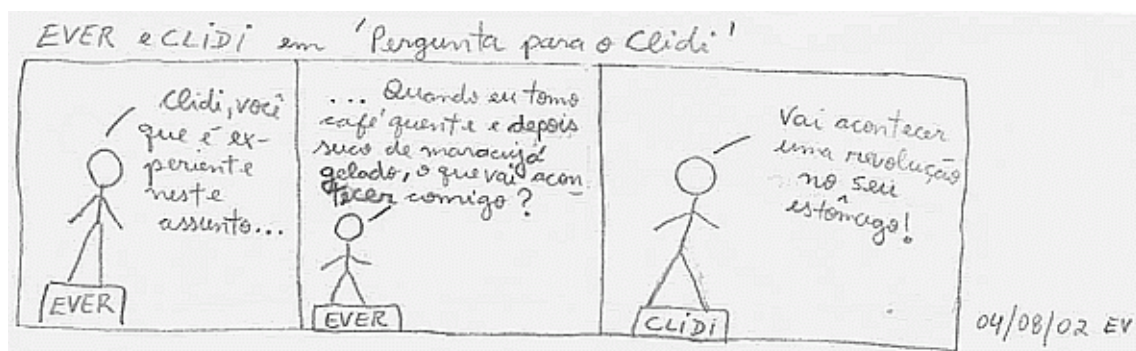 EVER e CLIDI em 'Pergunta para o Clidi'
Clidi, você
que é ex-
periente
neste
assunto...
EVER
... Quando eu tomo
café quente e depois
suco de maracujá
gelado, o que vai acon-
tecer comigo?
EVER
Vai acontecer
uma revolução
no seu
estômago!
CLIDI
04/08/02 EV